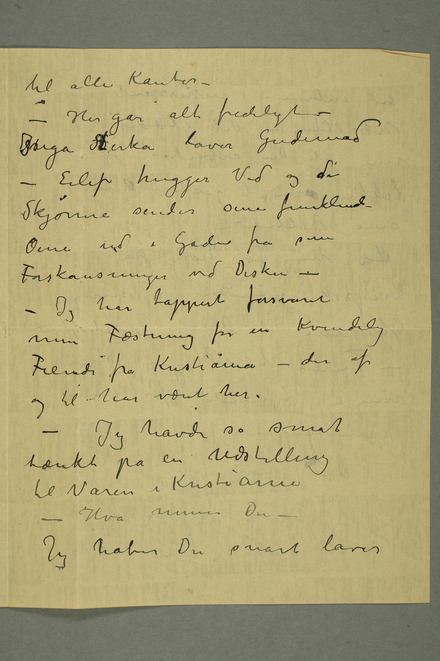 til alle Kanter –
– Her går alt fredeligt –
Inga Stærka laver Gudemad
– Eilif hugger Ved og din
Skjønne sender sine funklende
Øine ud i Gaden fra sine
Forskansninger ved Disken –
– Jeg har tappert forsvaret
min Fæstning for en Kvindelig
Fiende fra Kristiania – der af
og til har vært her.
– Jeg havde så småt
tænkt på en Udstilling
til Våren i Kristiania
– Hva mener Du –
Jeg håber Du snart laver